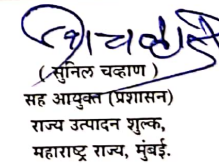 ( सुनिल चव्हाण )
सह आयुक्त (प्रशासन)
राज्य उत्पादन शुल्क,
महाराष्ट्र राज्य, मुंबई.